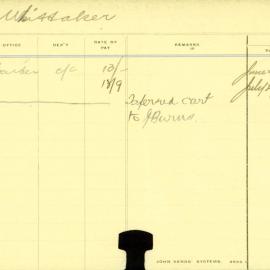 Whittaker
OFFICE DEP'T DATE OF PAY REMARKS
c/c 13/-
13/9
Taferred cart
to J Burns
June
July
JOHN SANDS SYSTEMS,